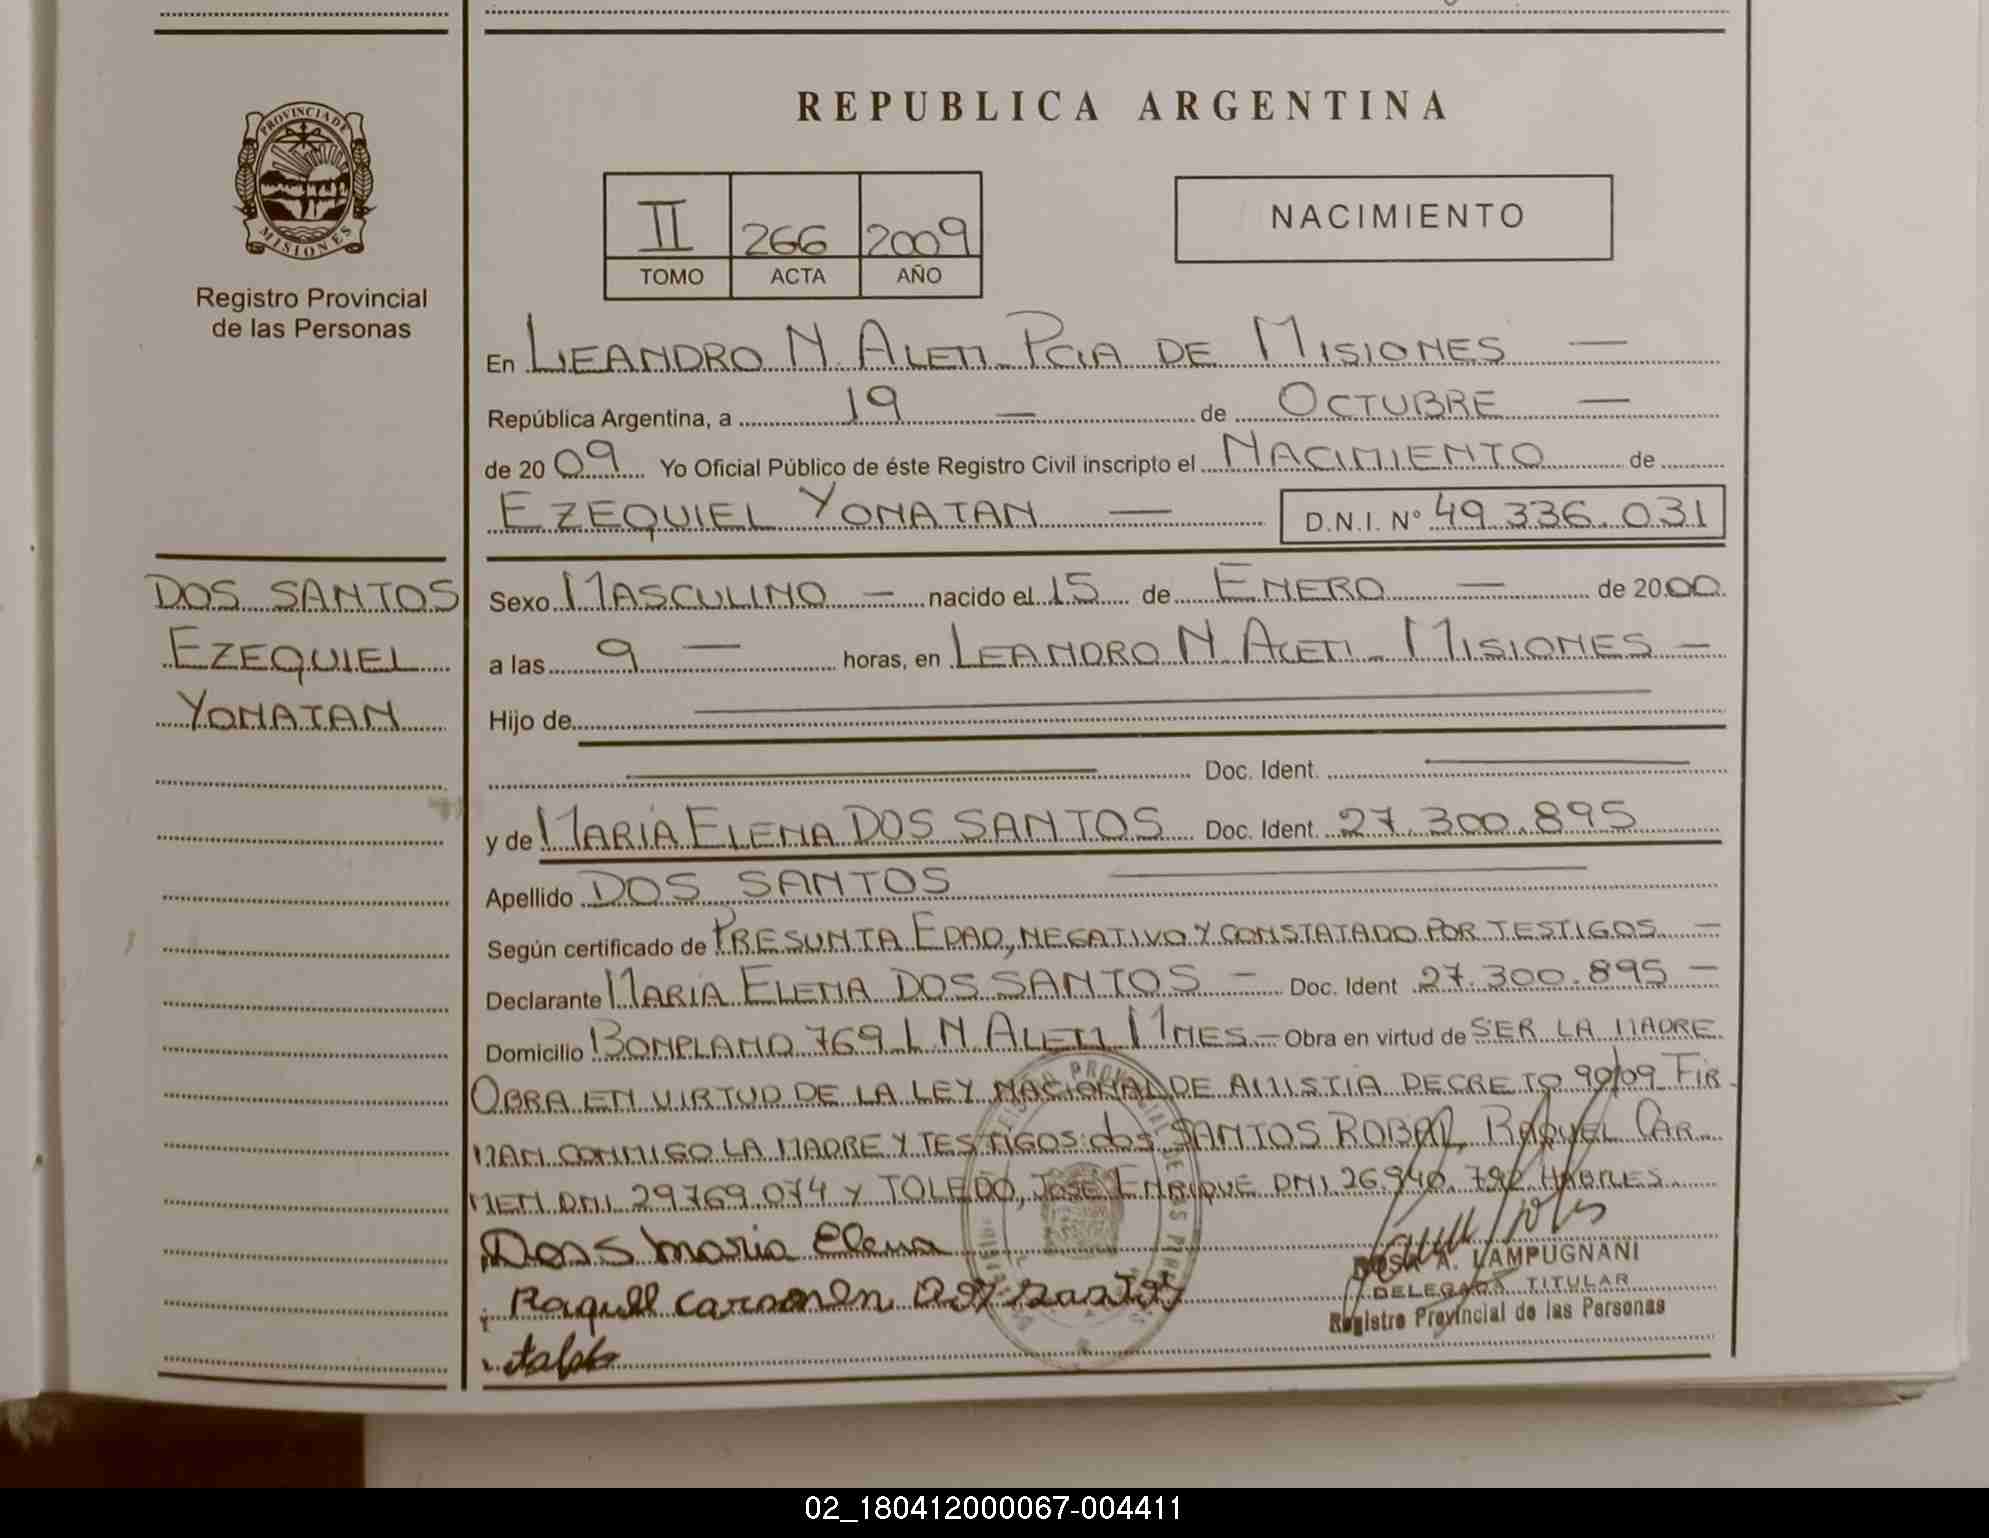 PROVINCIA DE
MISIONES
Registro Provincial
de las Personas
DOS SANTOS
EZEQUIEL
YONATAN
REPUBLICA ARGENTINA
II 266 2009
TOMO ACTA AÑO
NACIMIENTO
En LEANDRO N. ALEM PCIA DE MISIONES —
República Argentina, a 19 — de OCTUBRE —
de 2009 Yo Oficial Público de éste Registro Civil inscripto el NACIMIENTO de
EZEQUIEL YONATAN — D.N.I. Nº 49.336.031
Sexo MASCULINO — nacido el 15 de ENERO — de 2000
a las 9 — horas, en LEANDRO N ALEM - MISIONES —
Hijo de
Doc. Ident.
y de MARIA ELENA DOS SANTOS Doc. Ident. 27.300.895
Apellido DOS SANTOS
Según certificado de PRESUNTA EDAD, NEGATIVO Y CONSTATADO POR TESTIGOS —
Declarante MARIA ELENA DOS SANTOS — Doc. Ident 27.300.895 —
Domicilio BONPLAND 769 L N ALEM MNES — Obra en virtud de SER LA MADRE
OBRA EN VIRTUD DE LA LEY NACIONAL DE AMISTIA DECRETO 90/09 FIR
MAN CONMIGO LA MADRE Y TESTIGOS: dos SANTOS ROBAL, RAQUEL CAR
MEN DNI 29769.074 Y TOLEDO, JOSE ENRIQUE DNI 26.940.792 HABILES
Dos S Maria Elena
Raquel Carmen Dos Santos
ROSA A. LAMPUGNANI
DELEGADA TITULAR
Registro Provincial de las Personas
02_180412000067-004411